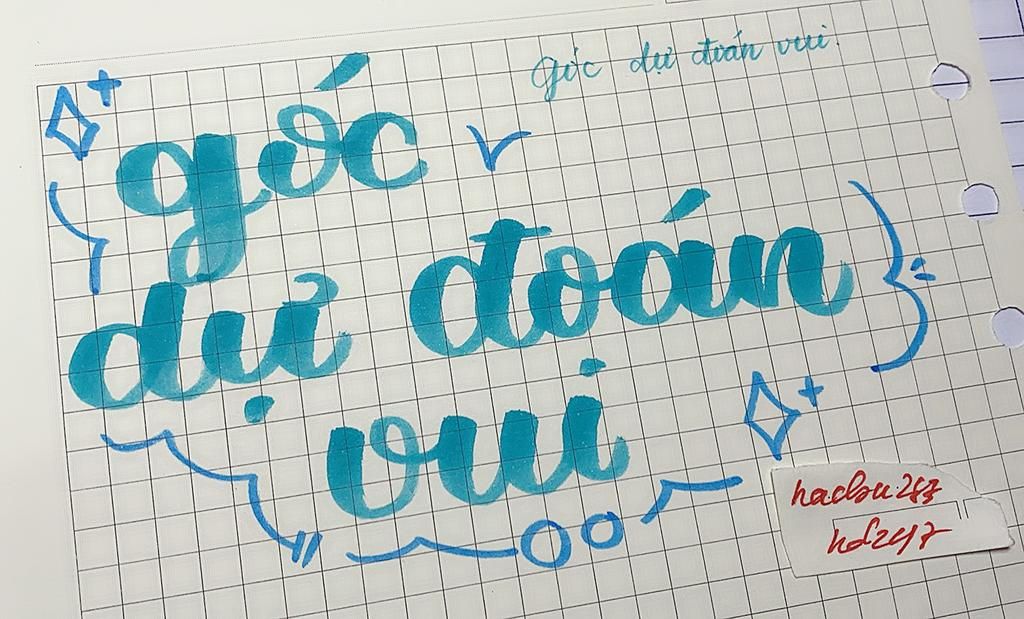 góc dự đoán vui.
góc
dự đoán
vui
hd247